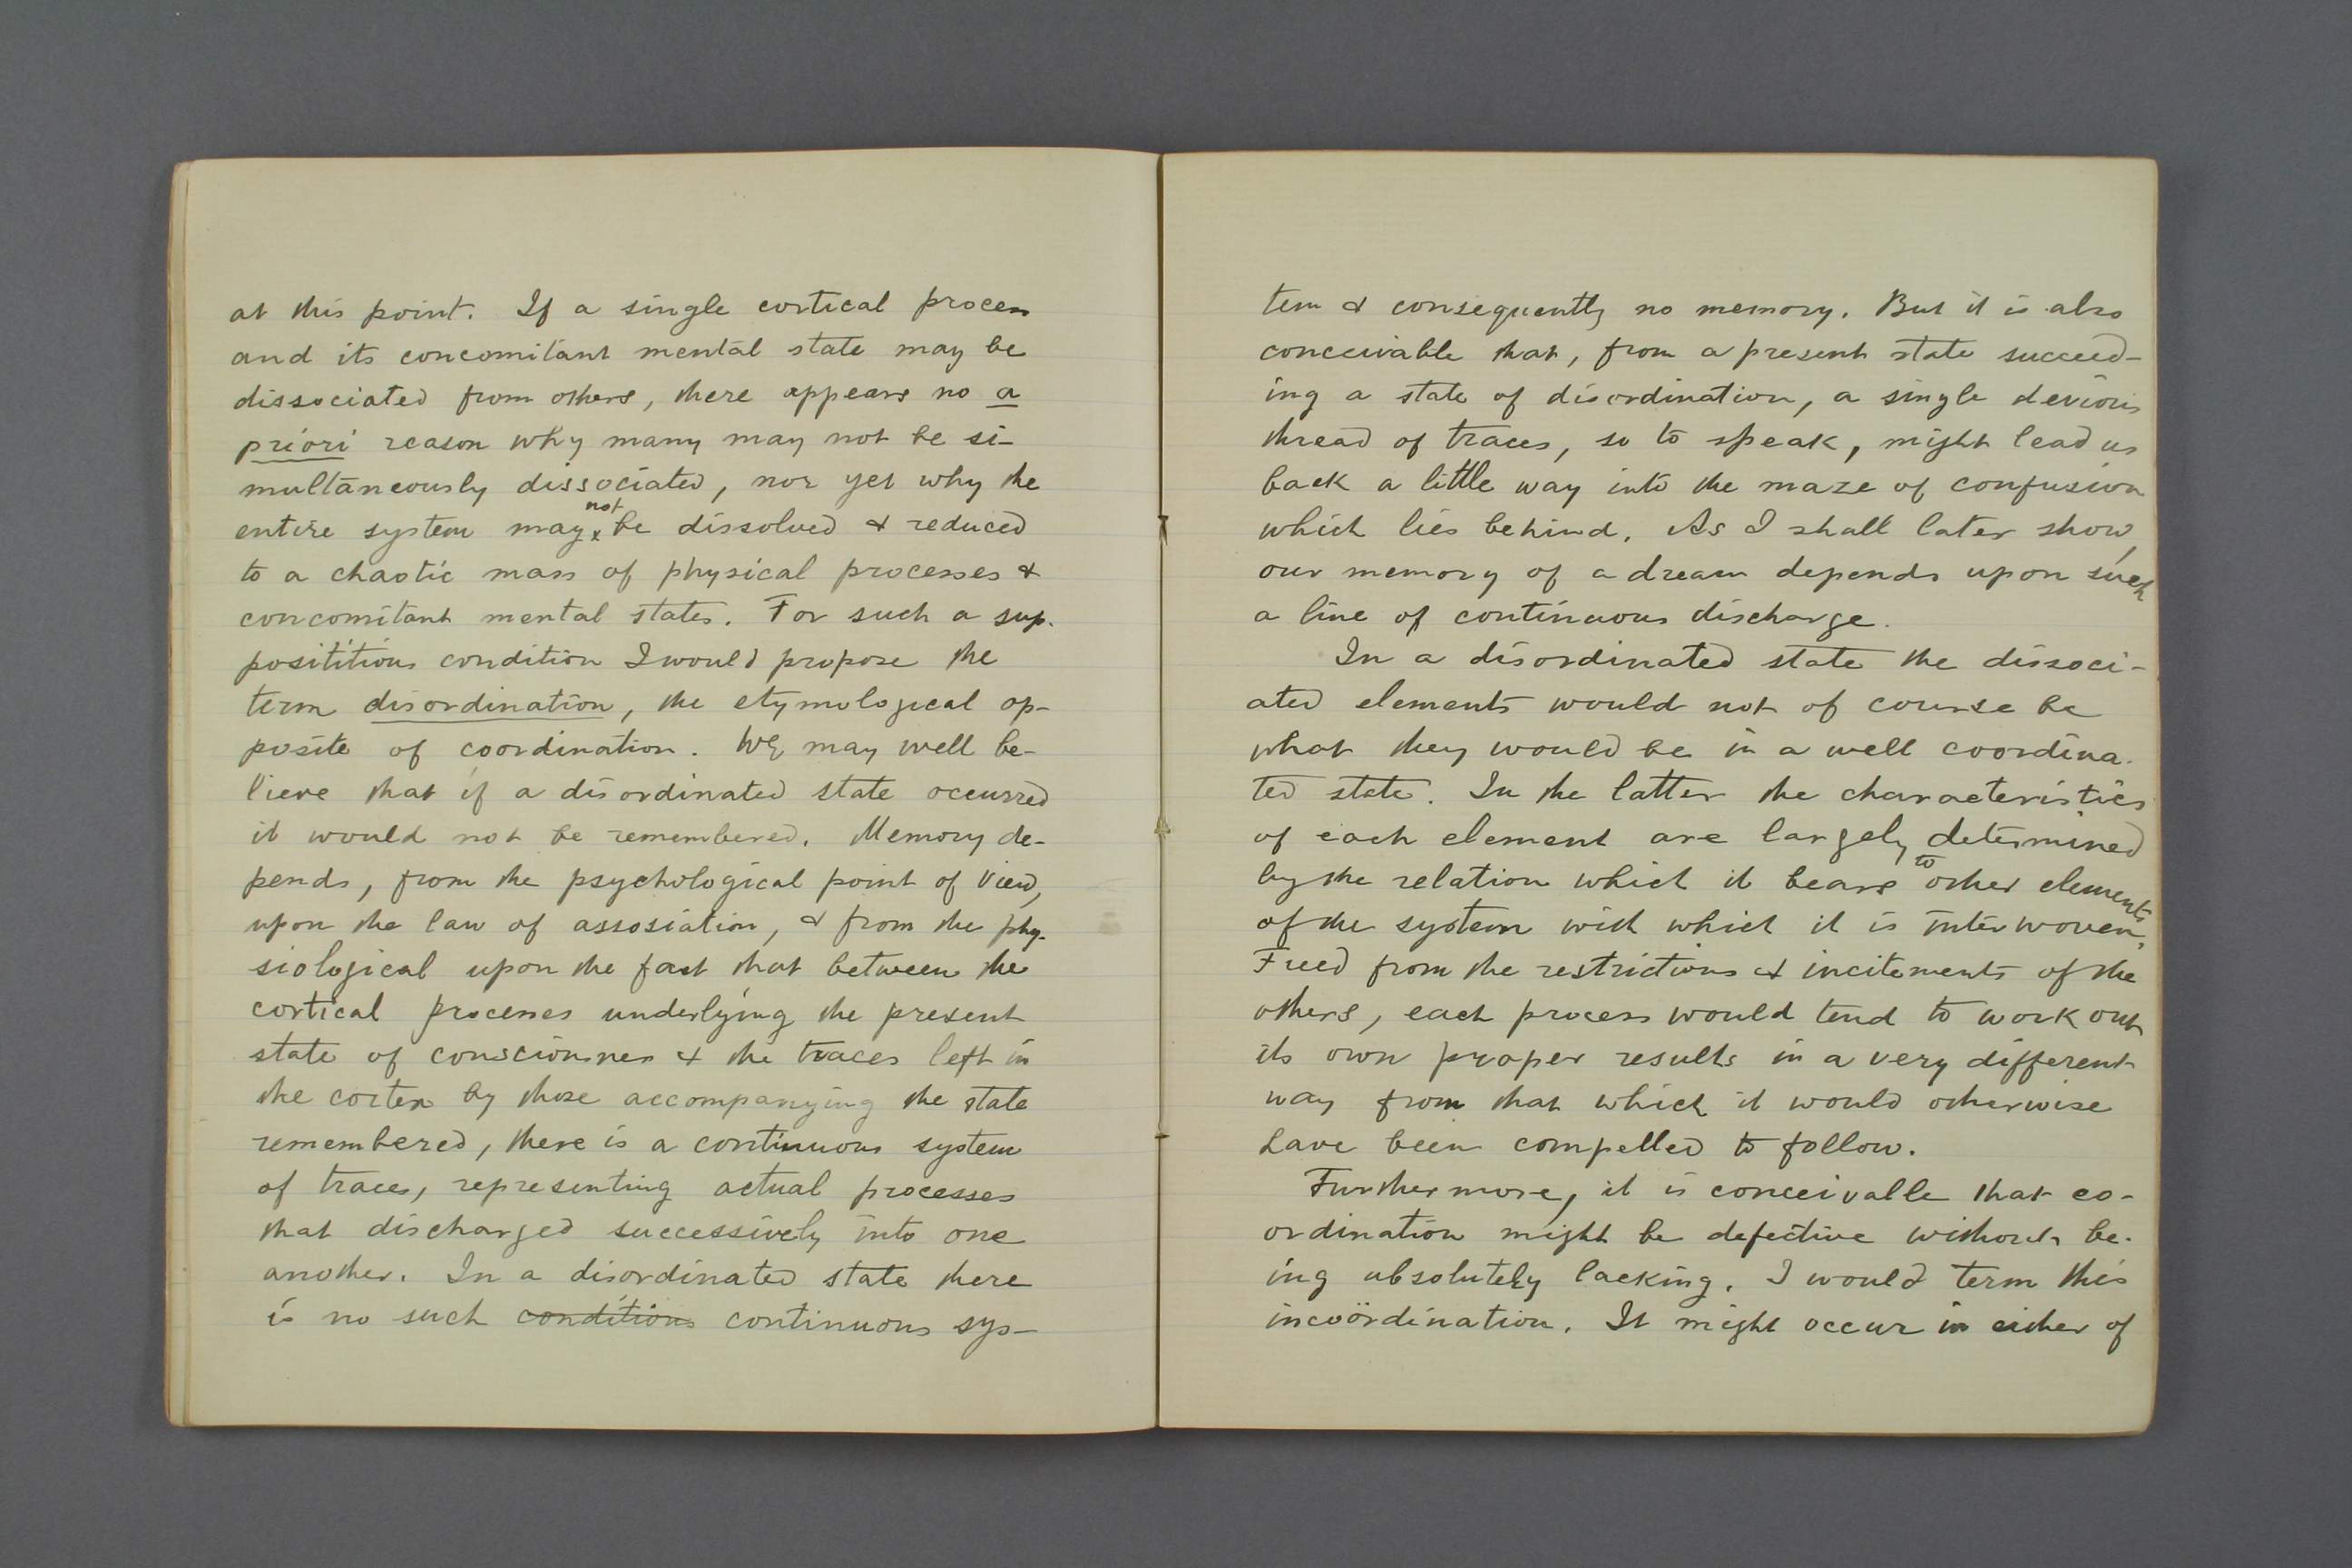 at this point. If a single cortical process
and its concomitant mental state may be
dissociated from others, there appears no a
priori reason why many may not be si-
multaneously dissociated, nor yet why the
entire system may not be dissolved & reduced
to a chaotic mass of physical processes &
concomitant mental states. For such a sup-
posititious condition I would propose the
term disordination, the etymological op-
posite of coordination. We may well be-
lieve that if a disordinated state occurred
it would not be remembered. Memory de-
pends, from the psychological point of view,
upon the law of assosiation, & from the phy-
siological upon the fact that between the
cortical processes underlying the present
state of consciousness & the traces left in
the cortex by those accompanying the state
remembered, there is a continuous system
of traces, representing actual processes
that discharged successively into one
another. In a disordinated state there
is no such conditions continuous sys-
tem & consequently no memory. But it is also
conceivable that, from a present state succeed-
ing a state of disordination, a single devious
thread of traces, so to speak, might lead us
back a little way into the maze of confusion
which lies behind. As I shall later show,
our memory of a dream depends upon such
a line of continuous discharge.
In a disordinated state the dissoci-
ated elements would not of course be
what they would be in a well coordina-
ted state. In the latter the characteristics
of each element are largely determined
by the relation which it bears to other elements
of the system with which it is interwoven.
Freed from the restrictions & incitements of the
others, each process would tend to work out
its own proper results in a very different
way from that which it would otherwise
have been compelled to follow.
Furthermore, it is conceivable that co-
ordination might be defective without be-
ing absolutely lacking. I would term this
incoördination. It might occur in either of